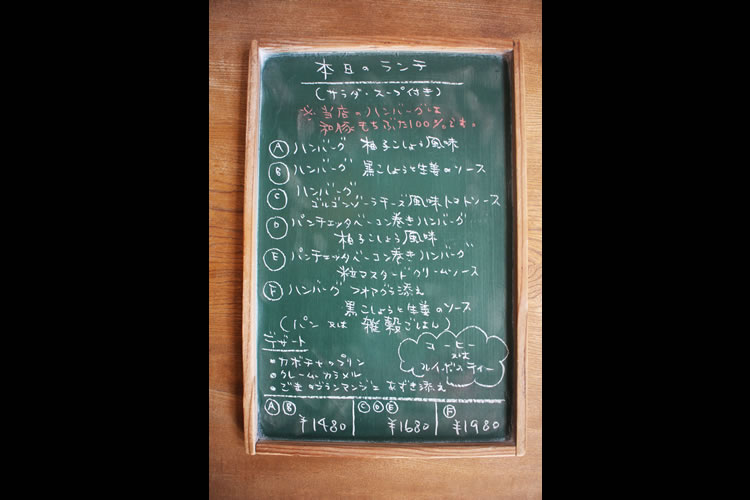 本日のランチ
(サラダ・スープ付き)
※当店のハンバーグは
和豚もちぶた100%です。
Ⓐ ハンバーグ 柚子こしょう風味
Ⓑ ハンバーグ 黒こしょうと生姜のソース
Ⓒ ハンバーグ
ゴルゴンゾーラチーズ風味トマトソース
Ⓓ パンチェッタベーコン巻きハンバーグ
柚子こしょう風味
Ⓔ パンチェッタベーコン巻きハンバーグ
粒マスタードクリームソース
Ⓕ ハンバーグ フォアグラ添え
黒こしょうと生姜のソース
(パン 又は 雑穀ごはん)
デザート
・カボチャのプリン
・クレームカラメル
・ごまのブランマンジェ あずき添え
コーヒー
又は
ルイボスティー
Ⓐ Ⓑ ¥1480
Ⓒ Ⓓ Ⓔ ¥1680
Ⓕ ¥1980